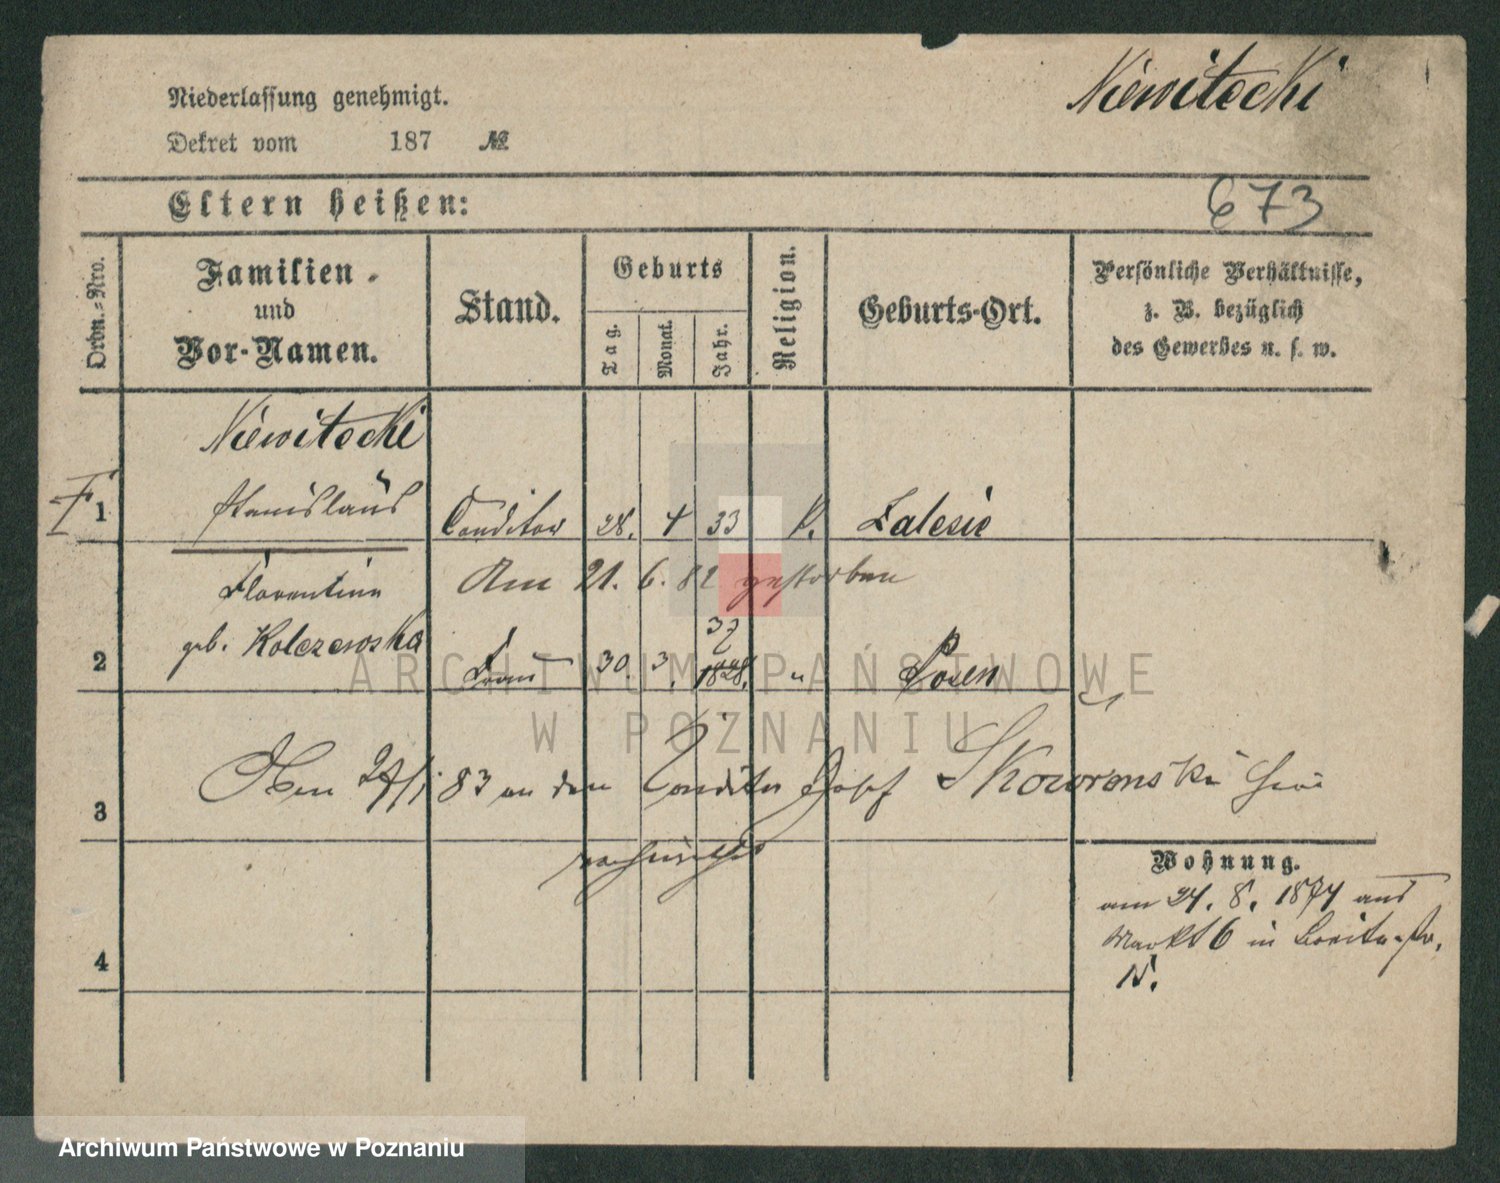 Niewitecki
Niederlassung genehmigt.
Dekret vom 187 №
Eltern heißen:
673
Ordn.=Nro.
Familien-
und
Vor-Namen.
Stand.
Geburts
Tag.
Monat.
Jahr.
Religion.
Geburts-Ort.
Persönliche Verhältnisse,
z. B. bezüglich
des Gewerbes u. s. w.
Niewitecki
1 Stanislaus Conditor 28. 4 33 K. Zalesie
Florentine Am 21. 6. 82 gestorben
geb. Kolczewska
37
2 Frau 30. 3. 1828. " Posen
3 Den 27/1 83 an den Conditor Josef Skoworonski hier
verheirathet
Wohnung.
am 24. 8. 1874 aus
Markt 6 in Breite-Str.
15.
4
ARCHIWUM PAŃSTWOWE
W POZNANIU
Archiwum Państwowe w Poznaniu